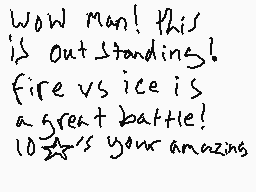 WOW Man! this
is outstanding!
fire vs ice is
a great battle!
10☆'s your amazing